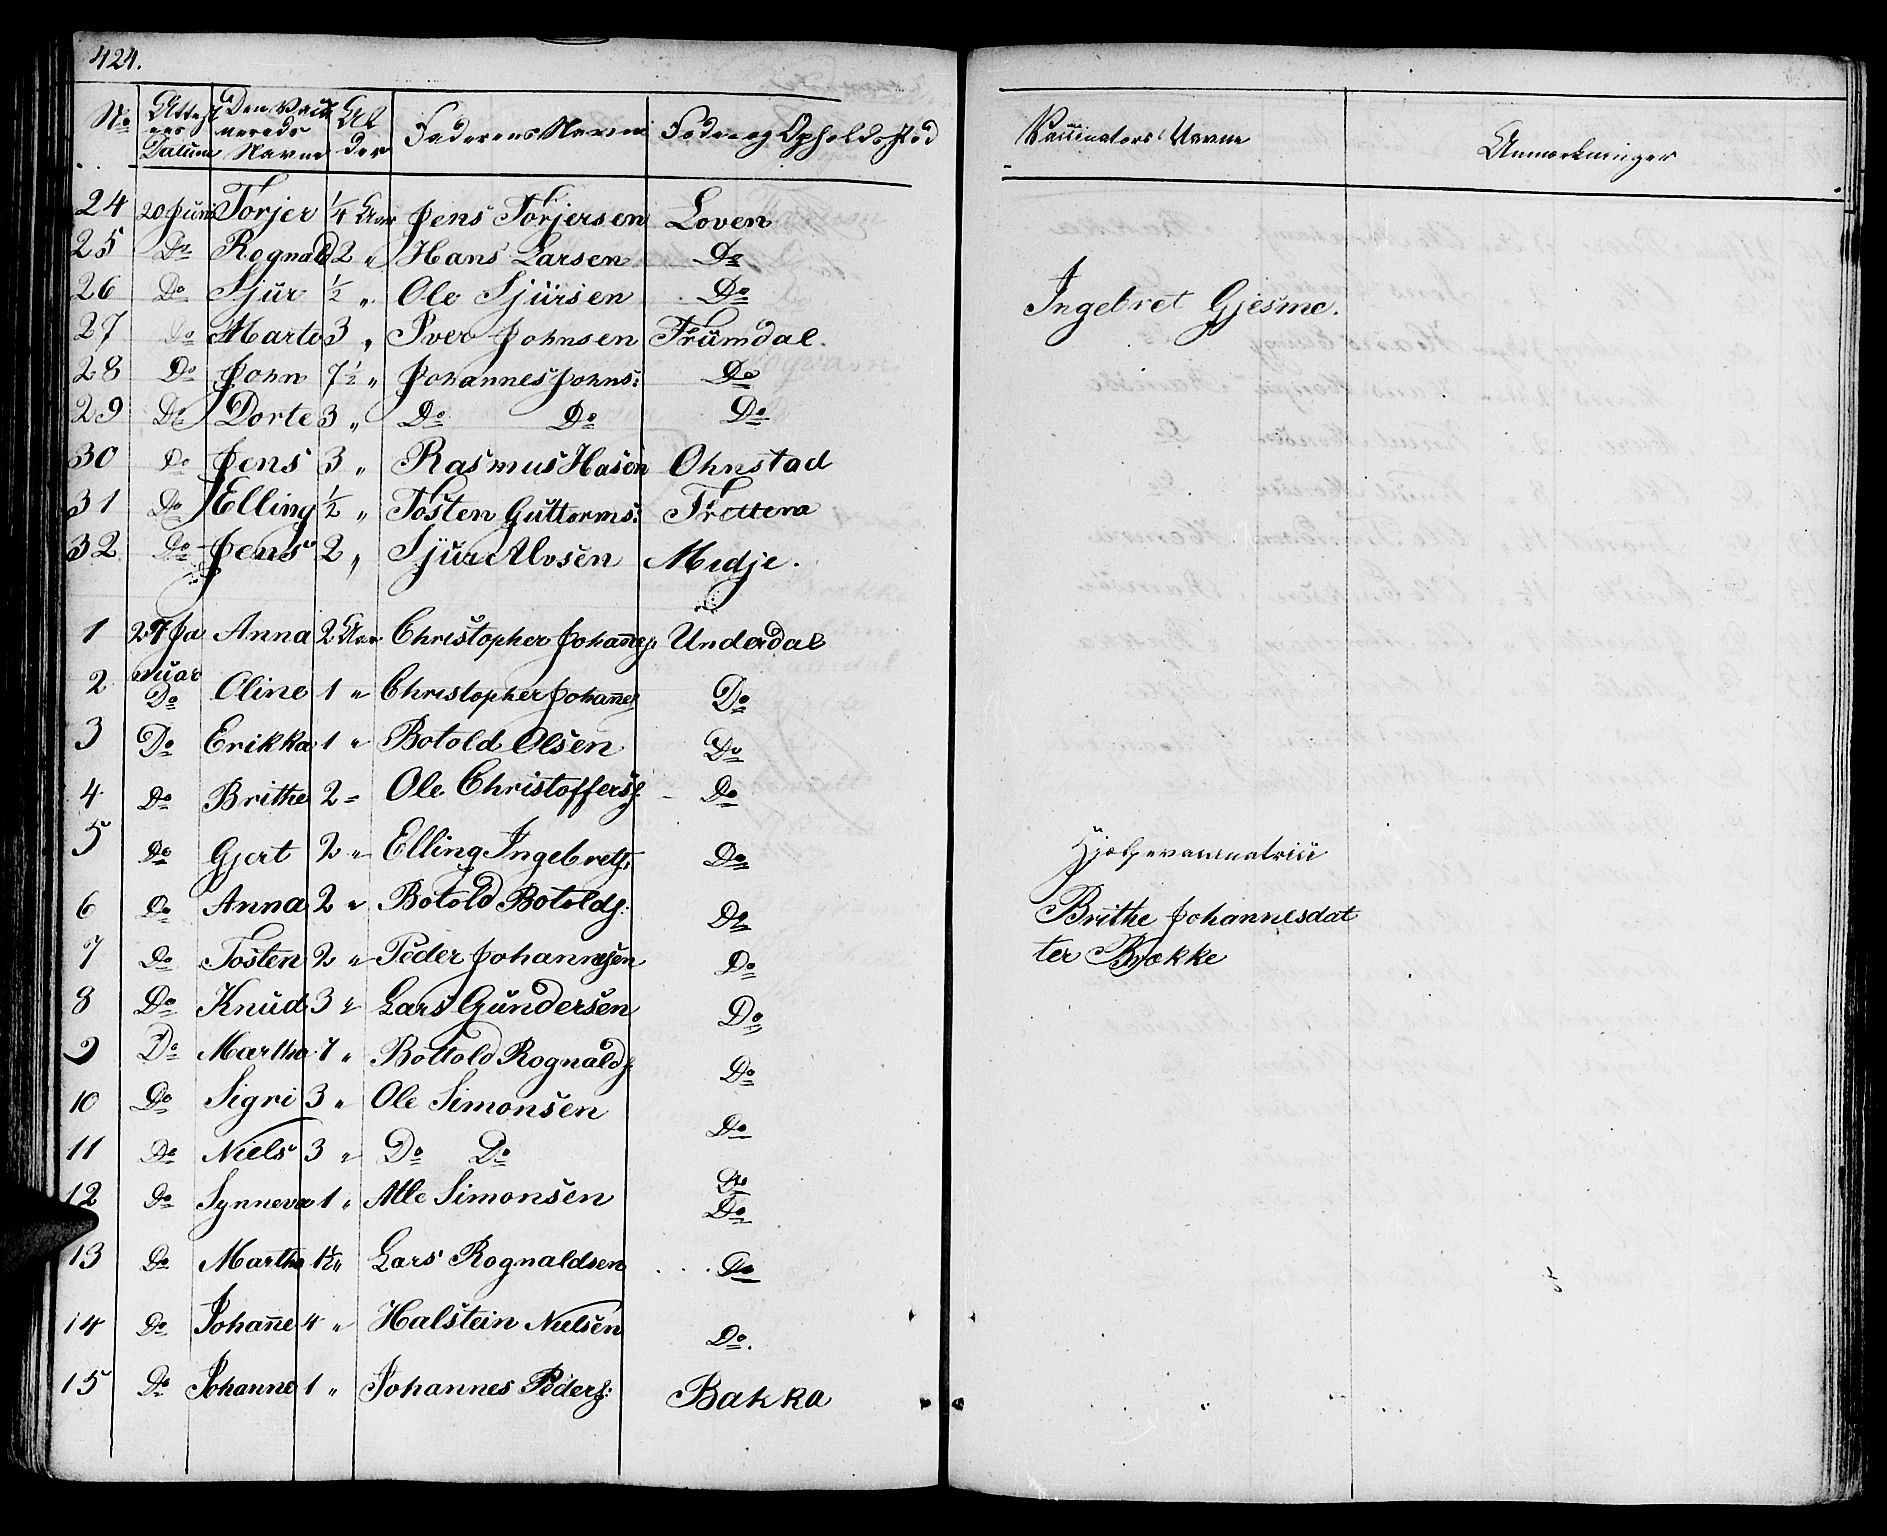 424.
No Attestens Datum Den Vaccineredes Navne Alder Faderens Navne Føde- og Opholdssted Vaccinators Navne Anmærkninger
24 20 Juni Torjer 1/4 Aar Jens Torjersen Loven
25 Do Rognald 2 " Hans Larsen Do
26 Do Sjur 1/2 " Ole Sjürsen Do
Ingebret Gjesme.
27 Do Marte 3 " Iver Johnsen Frümdal.
28 Do John 7 1/2 " Johannes Johns: Do
29 Do Dorte 3 " Do Do Do
30 Do Jens 3 " Rasmus Hasen Ohnstad
31 Do Elling 1/2 " Tosten Guttorms: Frettena
32 Do Jens 2 " Sjur Alvsen Midje.
1 27 Januar Anna 2 Aar Christopher Johaness: Underdal
2 Do Oline 1 " Christopher Johanes Do
3 Do Erikka 1 " Botold Olsen Do
4 Do Brithe 2 - Ole Christoffers: Do
5 Do Gjert 2 " Elling Ingebrets: Do
Hjælpevaccinatrice
6 Do Anna 2 " Botold Botolds: Do
Brithe Johannesdat
7 Do Tosten 2 " Peder Johannesen Do
ter Bække
8 Do Knud 3 " Lars Gundersen Do
9 Do Martha 7 " Bottold Rognalds: Do
10 Do Sigri 3 " Ole Simonsen Do
11 Do Niels 3 " Do Do Do
12 Do Synneva 1 " Atle Simonsen Do
13 Do Martha 1 1/2 " Lars Rognaldsen Do
14 Do Johanne 4 " Halstein Nielsen Do.
15 Do Johanne 1 " Johannes Peders: Bakka